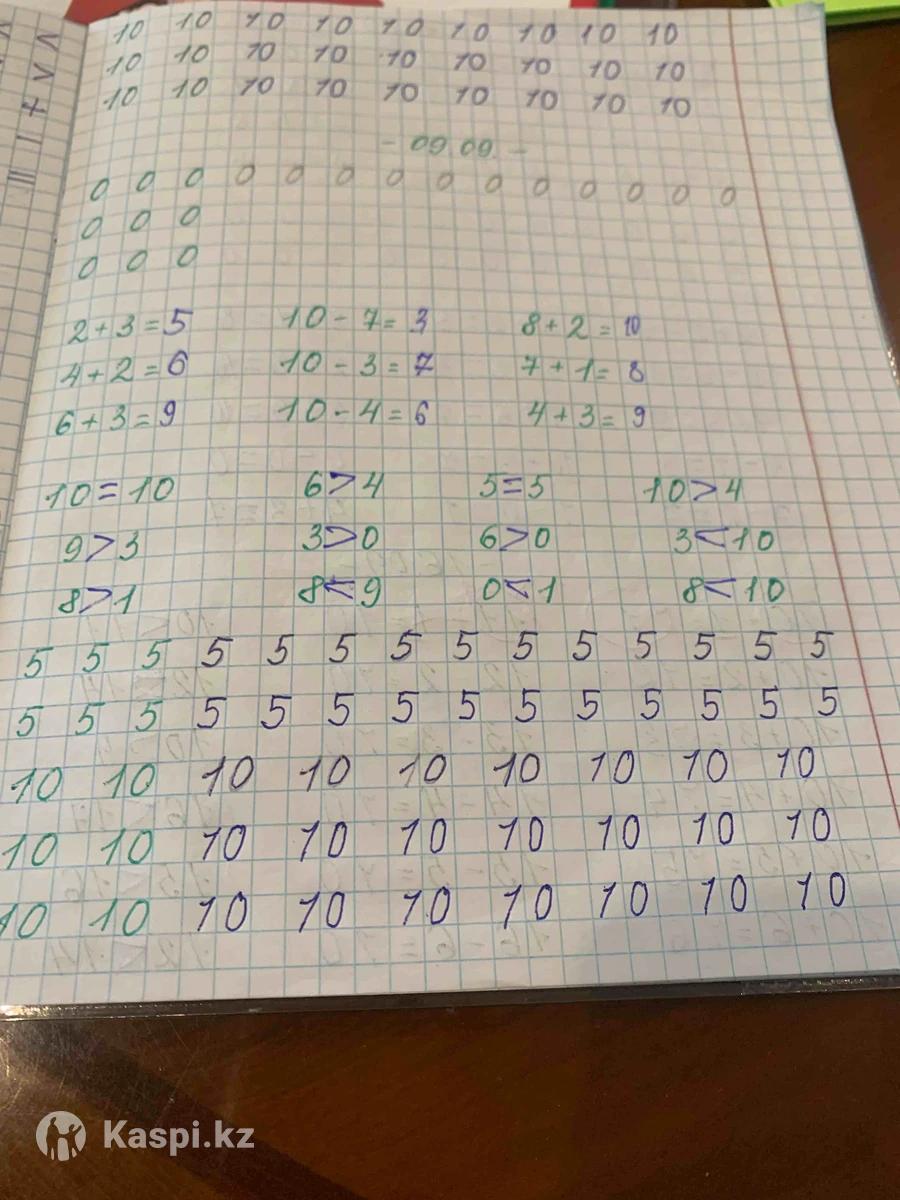 10 10 10 10 10 10 10 10 10
10 10 10 10 10 10 10 10 10
10 10 10 10 10 10 10 10 10
- 09.09. -
0 0 0 0 0 0 0 0 0 0 0 0 0 0
0 0 0
0 0 0
2+3=5 10-7=3 8+2=10
4+2=6 10-3=7 7+1=8
6+3=9 10-4=6 4+3=9
10=10 6>4 5=5 10>4
9>3 3>0 6>0 3<10
8>1 8<9 0<1 8<10
5 5 5 5 5 5 5 5 5 5 5 5 5 5
5 5 5 5 5 5 5 5 5 5 5 5 5 5
10 10 10 10 10 10 10 10 10
10 10 10 10 10 10 10 10 10
10 10 10 10 10 10 10 10 10
Kaspi.kz